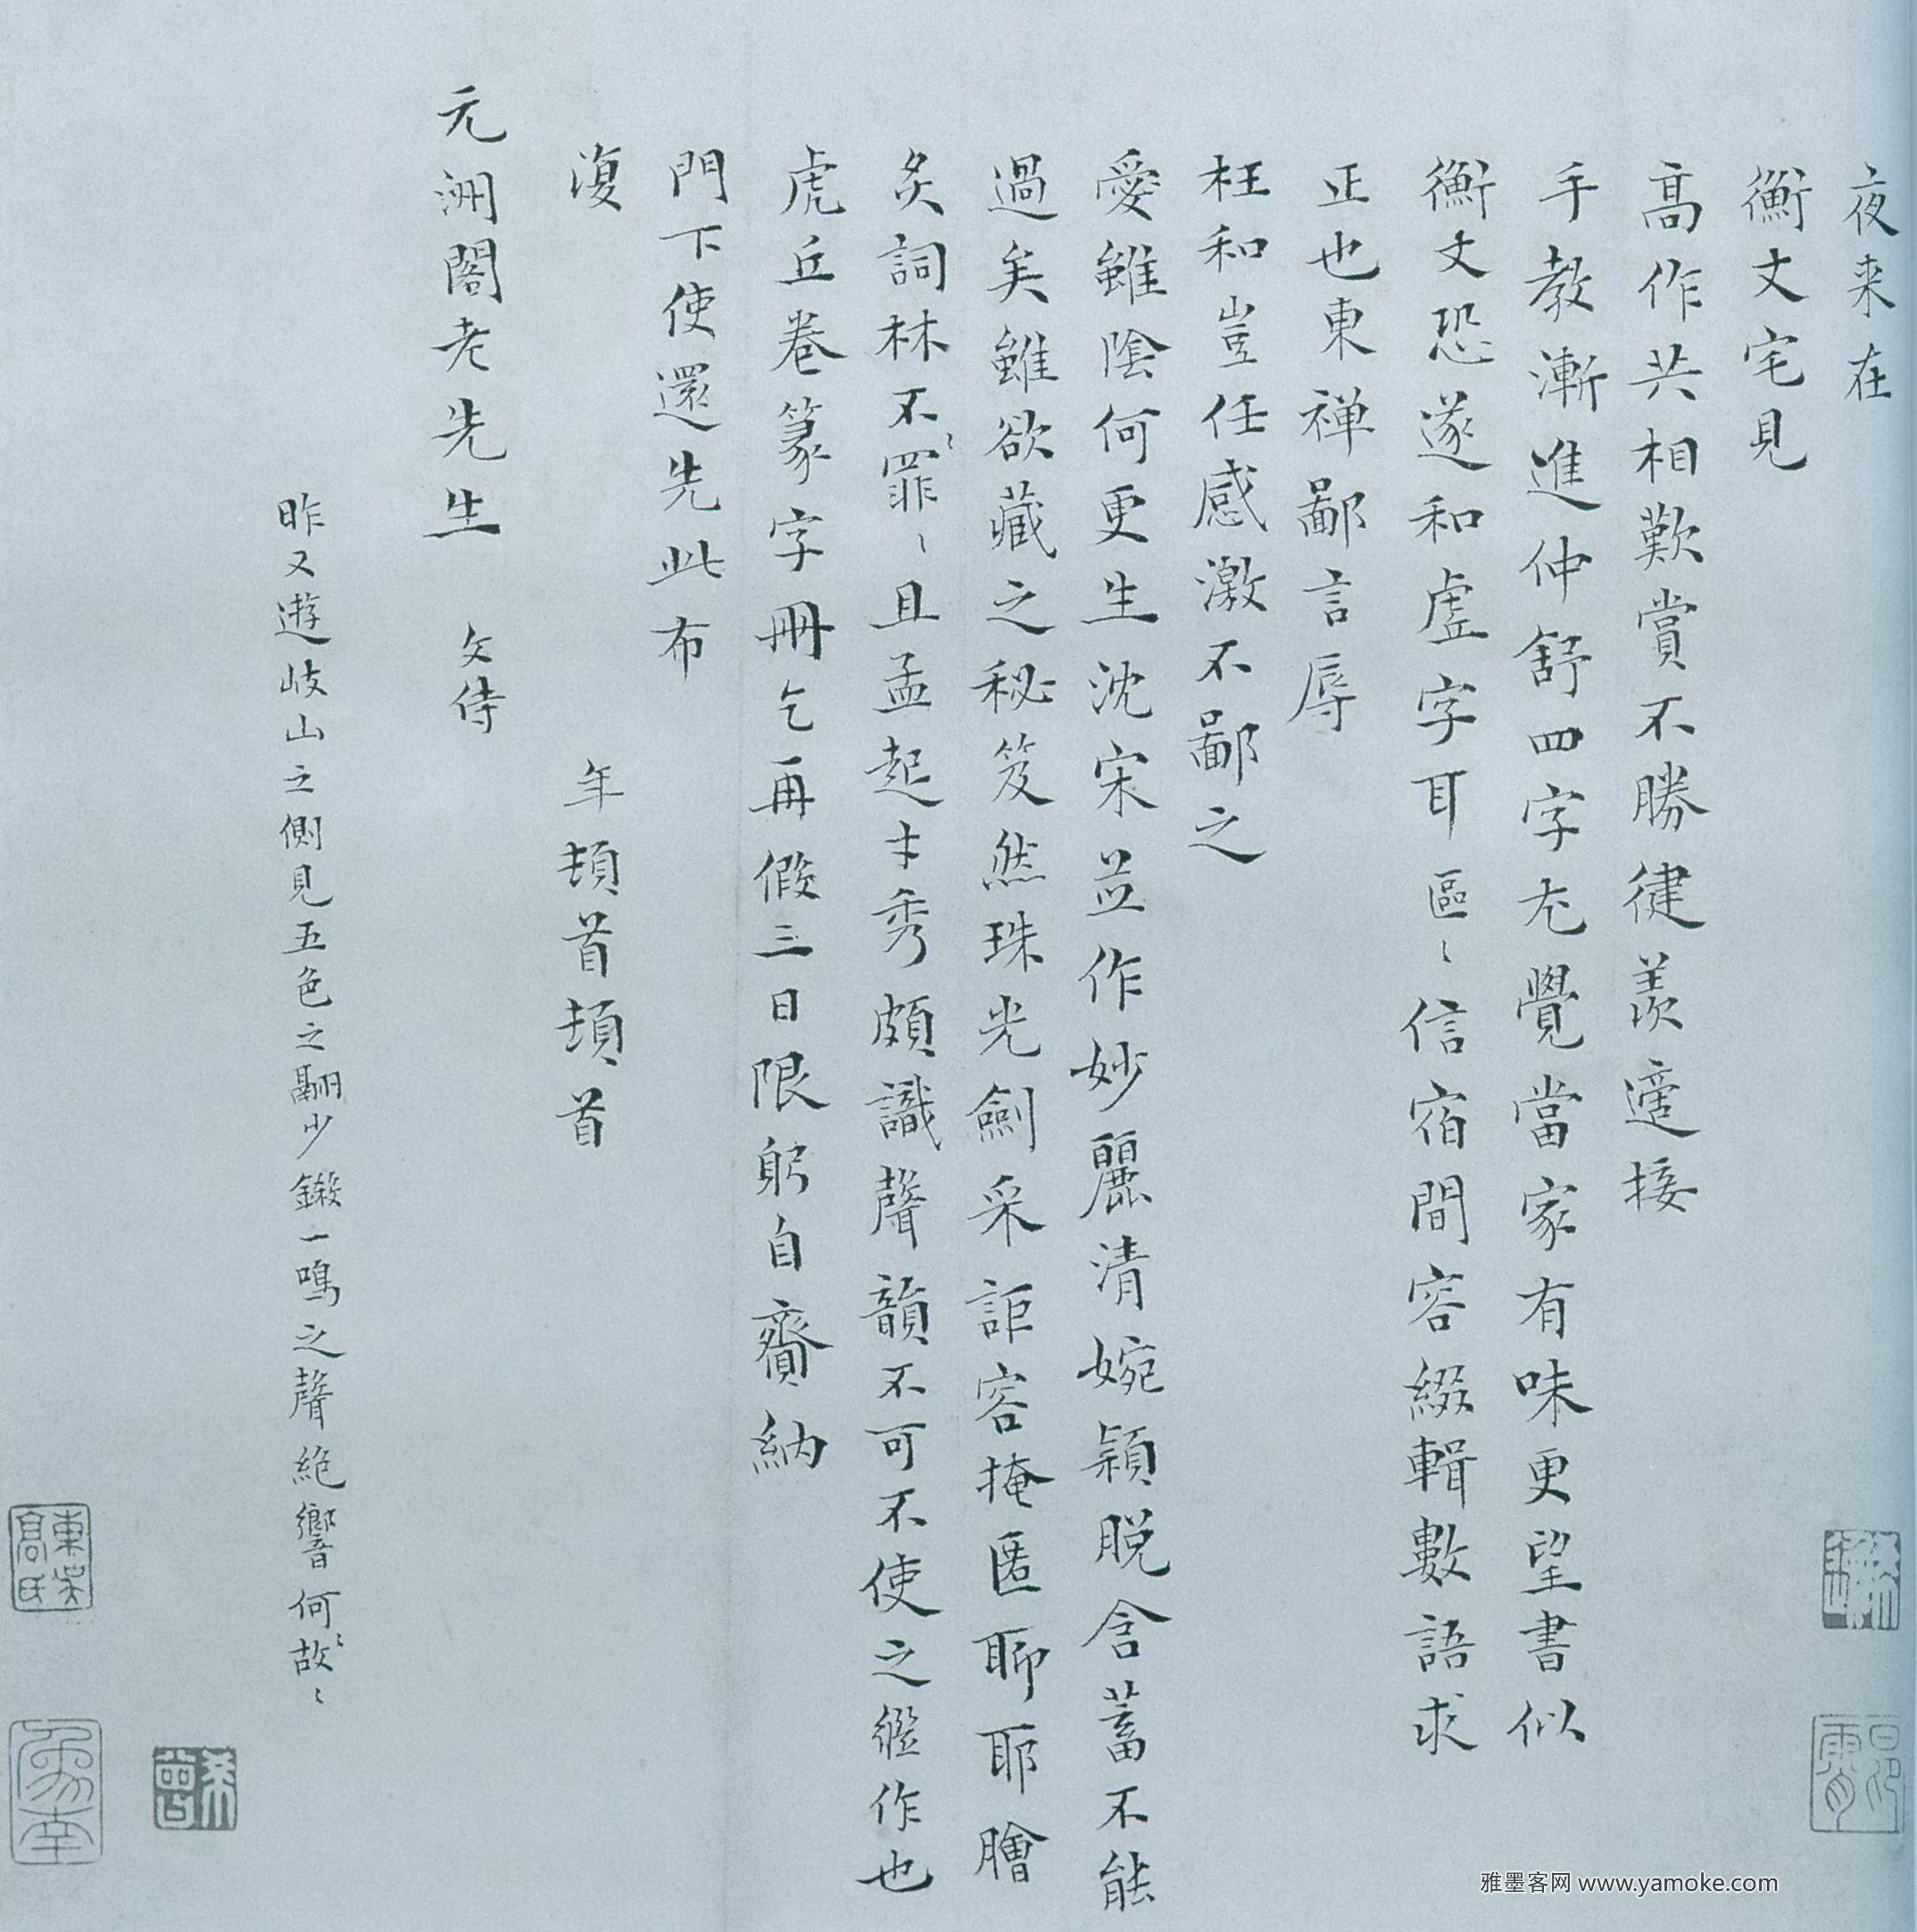 夜来在
衡丈宅見
高作共相歎賞不勝健羨適接
手教漸進仲舒四字尤覺當家有味更望書似
衡丈恐遂和虚字耳區〻信宿間容綴輯數語求
正也東禅鄙言辱
枉和豈任感激不鄙之
愛雖陰何更生沈宋並作妙麗清婉穎脱含蓄不能
過矣雖欲藏之秘笈然珠光劍采詎容掩匿耶耶膾
炙詞林不〻罪〻且孟起才秀頗識聲韻不可不使之繼作也
虎丘卷篆字冊乞再假三日限躬自齎納
門下使還先此布
復
年頓首頓首
元洲閣老先生 文侍
昨又遊岐山之側見五色之翮少鎩一鳴之聲絶響何〻故〻
東吳
高氏
雅墨客网 www.yamoke.com